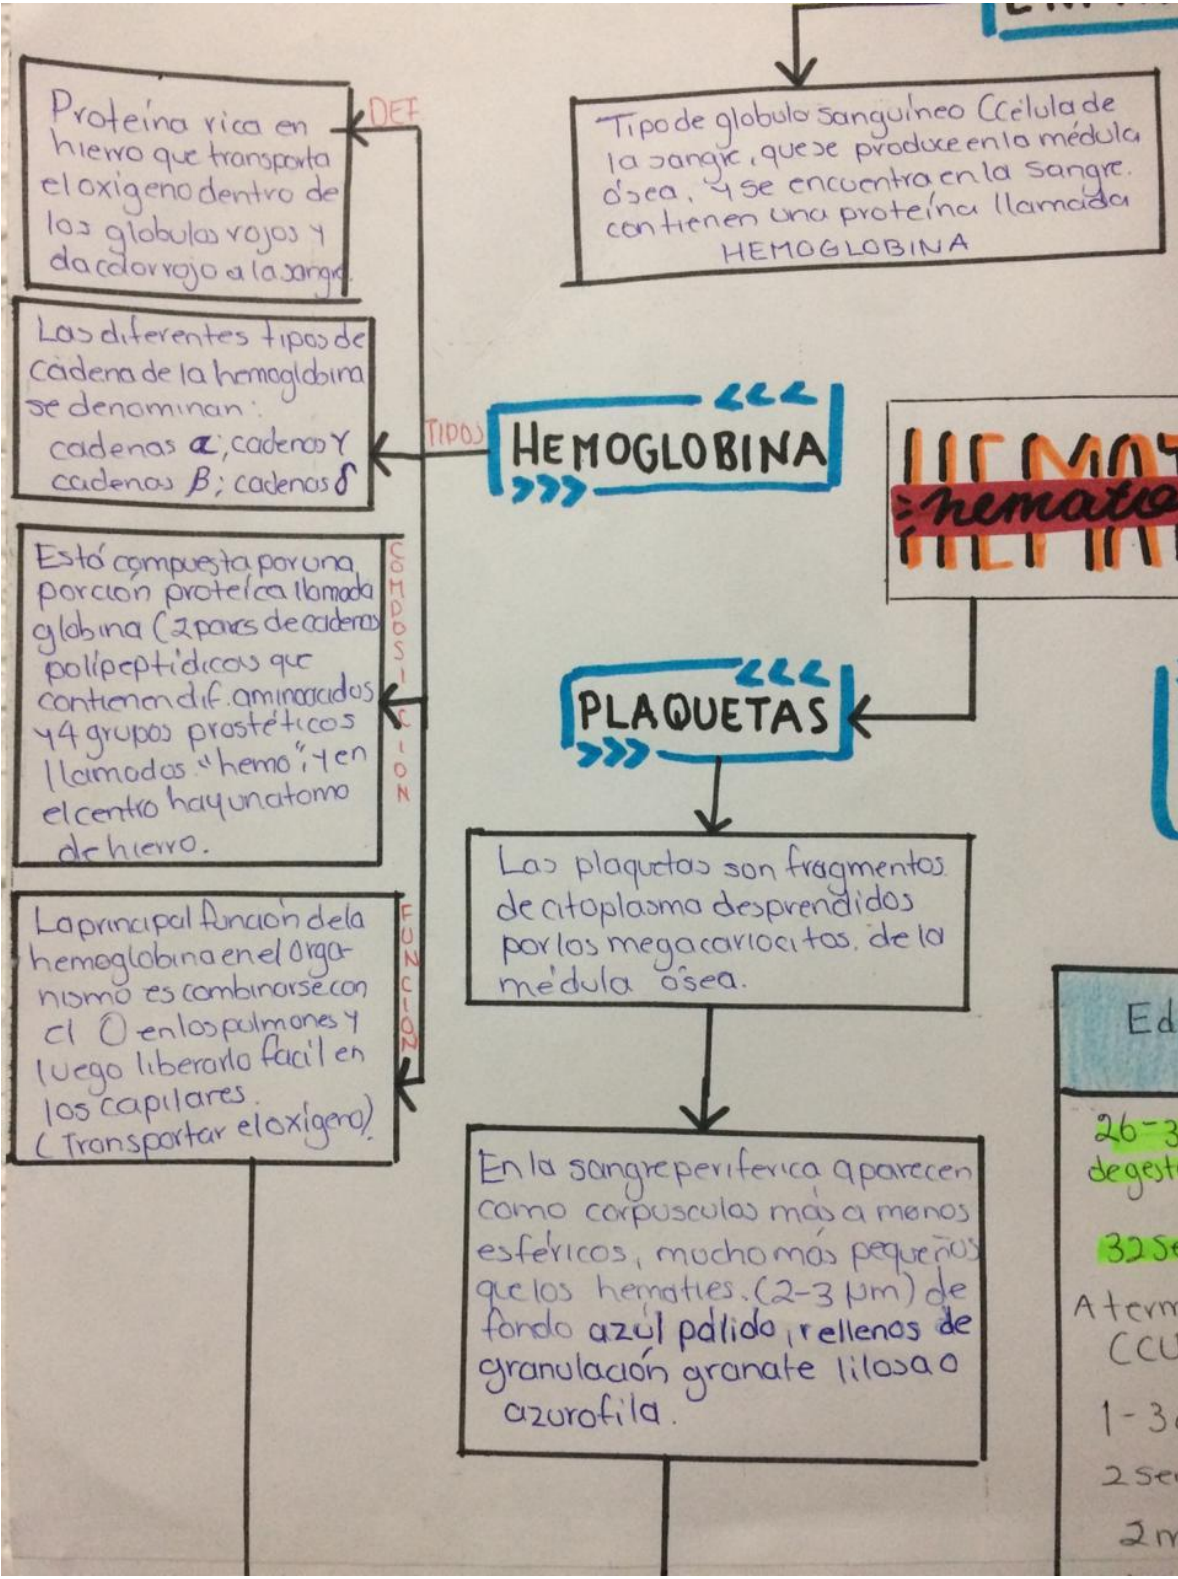 Proteína rica en
hierro que transporta
el oxigeno dentro de
los globulos rojos y
da color rojo a la sangre.
DEF
Las diferentes tipos de
cadena de la hemoglobina
se denominan:
cadenas α; cadenas γ
cadenas β; cadenas δ
TIPOS
HEMOGLOBINA
Está compuesta por una
porción proteíca llamada
globina (2 pares de cadenas
polipeptídicas que
contienen dif. aminoacidos
y 4 grupos prostéticos
llamados "hemo", y en
el centro hay un atomo
de hierro.
COMPOSICION
La principal función de la
hemoglobina en el orga-
nismo es combinarse con
el O en los pulmones y
luego liberarlo facil en
los capilares.
(Transportar el oxígeno).
FUNCION
Tipo de globulo sanguíneo (Célula de
la sangre, que se produce en la médula
ósea, y se encuentra en la sangre.
contienen una proteína llamada
HEMOGLOBINA
PLAQUETAS
Las plaquetas son fragmentos
de citoplasma desprendidos
por los megacariocitos. de la
médula ósea.
En la sangre periferica aparecen
como corpusculos más a menos
esféricos, mucho más pequeños
que los hematies. (2-3 μm) de
fondo azúl pálido, rellenos de
granulación granate lilosa o
azurofila.
Ed
26-3
de gest
32 Se
A term
CCU
1-3
2 se
2 m